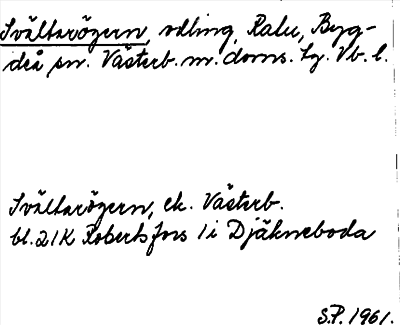 Svältarögern, odling, Ralu, Byg-
deå sn. Västerb. m. doms. hg. Vb. l.
Svältarögern, ek. Västerb.
bl. 21K Robertsfors 1i Djäkneboda
S.P. 1961.